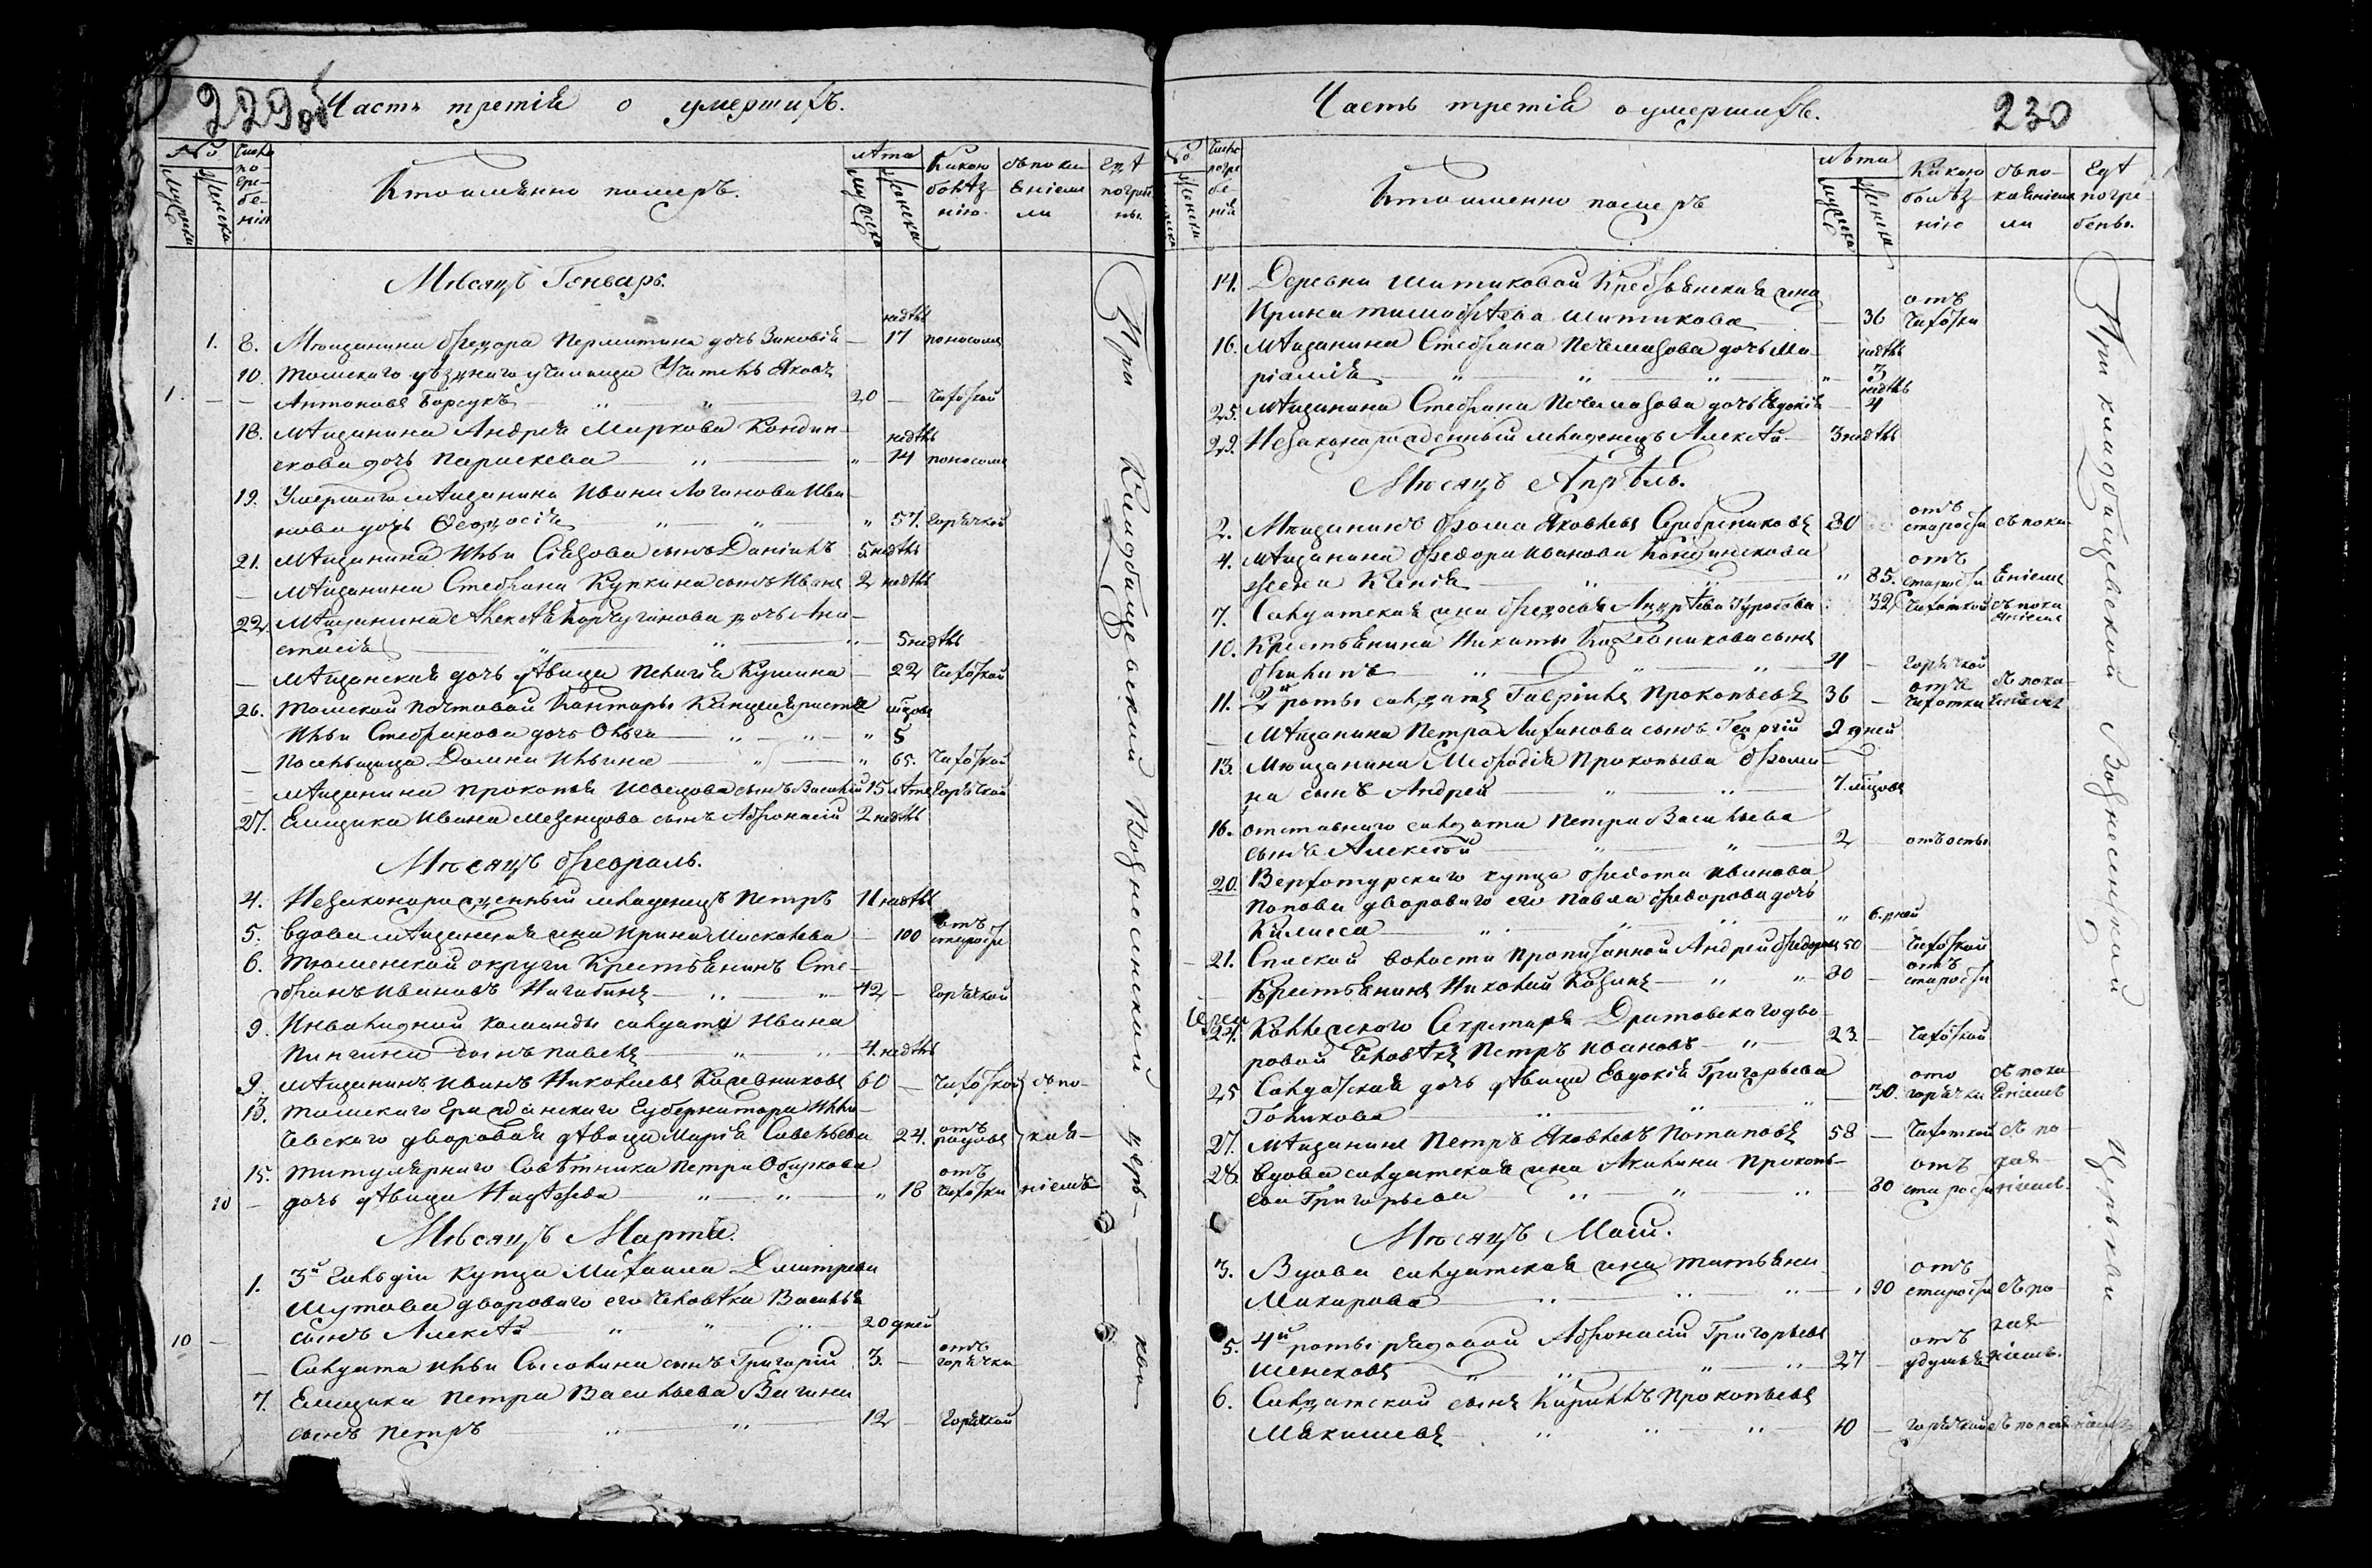 229об
Часть третія о умершихъ.
№
мужска
женска
Число
по
гре-
бе-
нія
Кто имянно померъ.
лѣта
мужска
женска
Какою
болѣз
нію.
съ пока
яніемъ
ли
Гдѣ
погреб
ны.
Мѣсяцъ Генварь.
недѣль
1. 8. Мѣщанина Федора Пермитина дочь Зиновія — 17 поносомъ
10. Томскаго уѣзднаго училища Учитель Яковъ
1. — — Антоновъ Борсукъ 20 — Чахоткой
18. Мѣщанина Андрея Маркова Кондин-
недѣль
скова дочь Параскева „ 14 поносомъ
19. Умершаго мѣщанина Ивана Логинова Ива-
нова дочь Ѳеодосія „ 57. Горячкой
21. Мѣщанина Ильи сынъ Даніилъ 5 недѣль
— Мѣщанина Стефана Куркина сынъ Иванъ 2 недѣль
22. Мѣщанина Алексѣя Корчуганова дочь Ана-
стасія 5 недѣль
— Мѣщанская дочь дѣвица Пелагія Кушина — 22 Чахоткой
26. Томской Почтовой Канторы Канцеляриста мѣсяцов
Ильи Стефанова дочь Ольга „ 5
— Посельщица Домна Ильина „ 65. Чахоткой
— Мѣщанина Прокопья Швецова сынъ Василій 15 лѣтъ Горячкой
27. Ямщика Ивана Мезенцова сынъ Афонасій 2 недѣль
Мѣсяцъ Февраль.
4. Незаконорожденный младенецъ Петръ 11 недѣль
5. Вдова мѣщанская жена Ирина Москалева — 100 отъ старости
6. Тюменской округи Крестьянинъ Сте-
фанъ Ивановъ Нагибинъ 42 — Горячкой
9. Инвалидной команды солдата Ивана
Пичугина сынъ Павелъ 4. недѣль
9. Мѣщанинъ Иванъ Николаевъ Кожевниковъ 60 — Чахоткой съ по-
13. Томскаго Гражданскаго Губернатора Илли-
чевскаго дворовая дѣвица Марія Савельева 24. отъ родовъ кая-
15. Титулярнаго Совѣтника Петра Обаркова отъ
10 — дочь дѣвица Надѣжда „ 18 Чахотки ніемъ
Мѣсяцъ Мартъ.
1. 3й Гильдіи Купца Михаила Дмитрева
Шутова двороваго его человѣка Василья
10 — сынъ Алексѣй 20 дней
— Солдата Ильи сынъ Григорій 3. — отъ горячки
7. Ямщика Петра Васильева Вагина
сынъ Петръ 12 — Горячкой
При Кладбищевской Вознесенской церь- кви
230
Часть третія о умершихъ.
№
женска
Число
погре
бе-
нія
Кто именно померъ
лѣта
мужска
женска
Какою
болѣз
нію
съ по-
каяніемъ
ли
Гдѣ
погре-
бены.
14. Деревни Шитиковой Крестьянская жена
Ирина Тимофѣева Шитикова — 36 отъ Чахотки
16. Мѣщанина Стефана дочь Ма- недѣль
ріамія „ 3
недѣль
25. Мѣщанина Стефана дочь Евдокія — 4
29. Незаконорожденный младенецъ Алексѣй — 3 недѣль
Мѣсяцъ Апрѣль.
2. Мѣщанинъ Фома Яковлевъ Серебрениковъ 80 отъ старости съ пока-
4. Мѣщанина Федора Иванова Кандинскова отъ
жена Ксенія „ 85. старости яніемъ
7. Солдатская жена Федосья Андрѣева — 32 Чахоткой съ пока
яніемъ
10. Крестьянина Никиты сынъ
Филипъ 4 — Горячкой
11. 2й роты солдатъ Гавріилъ Прокопьевъ 36 — отъ Чахотки съ пока-
яніемъ
— Мѣщанина Петра сынъ Георгій 2 дней
13. Мѣщанина Мефодія Прокопьева Фоми-
на сынъ Андрей 7. мѣсяцовъ
16. отставнаго солдата Петра Васильева
сынъ Алексѣй 2 отъ оспы
20. Верхотурскаго купца Федота Иванова
Попова двороваго его Павла Федорова дочь
„ 6. дней
21. Спаской волости Пропитанной Андрей Федоровъ 50 — Чахоткой
— Крестьянинъ Николай Козинъ 80 — отъ старости
24. Коллежскаго Секретаря дво-
ровой Человѣкъ Петръ Ивановъ 23 — Чахоткой
25 Солдатская дочь дѣвица Евдокія Григорьева ото съ пока
Голикова — 30. горячки яніемъ
27. Мѣщанинъ Петръ Яковлевъ Потаповъ 58 — Чахоткой съ по
28. Вдова солдатская жена Акилина Прокопь- отъ кая-
ева Григорьева 80 старости ніемъ.
Мѣсяцъ Маій.
3. Вдова солдатская жена Татьяна отъ
Макарова „ 90 старости съ по-
5. 4й роты рядовой Афонасій Григорьевъ отъ кая-
27 — удушья ніемъ.
6. Солдатской сынъ Кирилъ Прокопьевъ
Мякишевъ 10 — Горячкой съ покаяніемъ
При кладбищевской Вознесенской Церькви